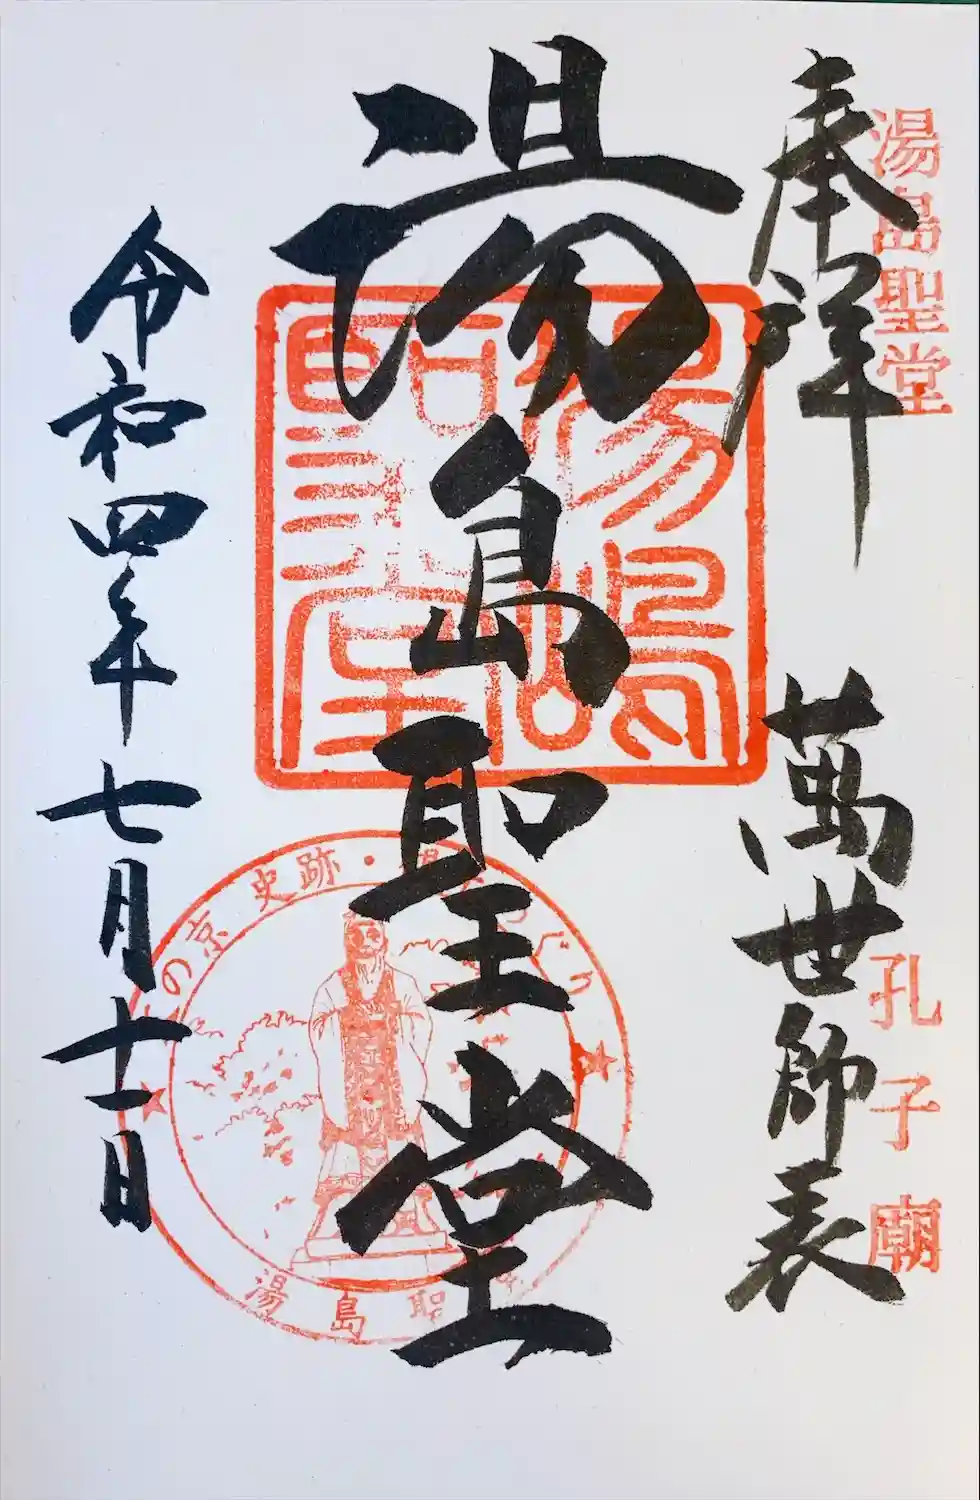 湯島聖堂
孔子廟
奉拝
萬世師表
湯島聖堂
湯嶋聖堂
の京 史跡・
湯島聖
令和四年七月十一日